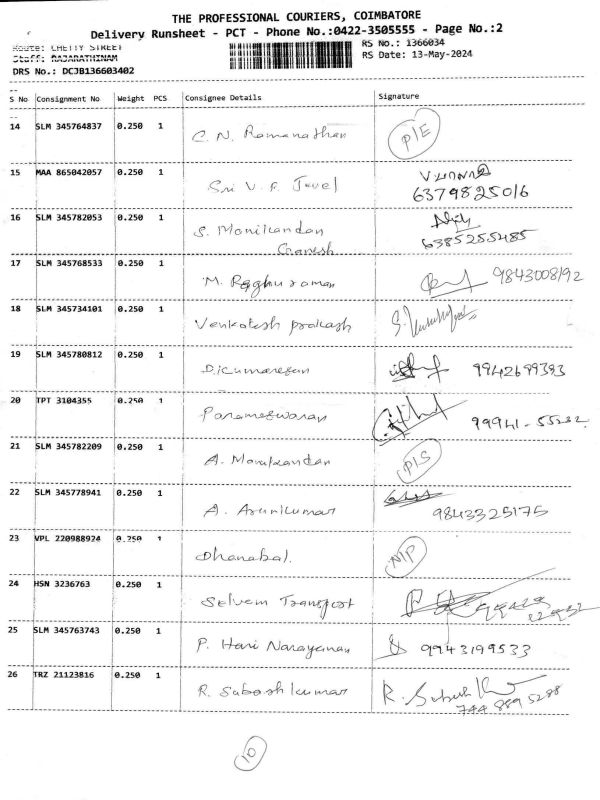 THE PROFESSIONAL COURIERS, COIMBATORE
Delivery Runsheet - PCT - Phone No.:0422-3505555 - Page No.:2
Route: CHETTY STREET
RS No.: 1366034
Staff: RAJARATHINAM
RS Date: 13-May-2024
DRS No.: DCJB136603402
S No Consignment No Weight PCS Consignee Details Signature
14 SLM 345764837 0.250 1 C. N. Ramanathan P/E
15 MAA 865042057 0.250 1 Sri V. S. Jewel
6379825016
16 SLM 345782053 0.250 1 S. Manikandan
Ganesh 6385255485
17 SLM 345768533 0.250 1 M. Raghuraman 9843008192
18 SLM 345734101 0.250 1 Venkatesh prakash
19 SLM 345780812 0.250 1 D. Kumaresan 9942699393
20 TPT 3104355 0.250 1 Parameswaran 99941-55232
21 SLM 345782209 0.250 1 A. Manikandan P/S
22 SLM 345778941 0.250 1 A. Arunkumar 9843325175
23 VPL 220988924 0.250 1 Dhanabal. N/P
24 HSN 3236763 0.250 1 Selvam Transport
25 SLM 345763743 0.250 1 P. Hari Narayanan 9943199533
26 TRZ 21123816 0.250 1 R. Subash kumar R. Subash
744 889 5288
10